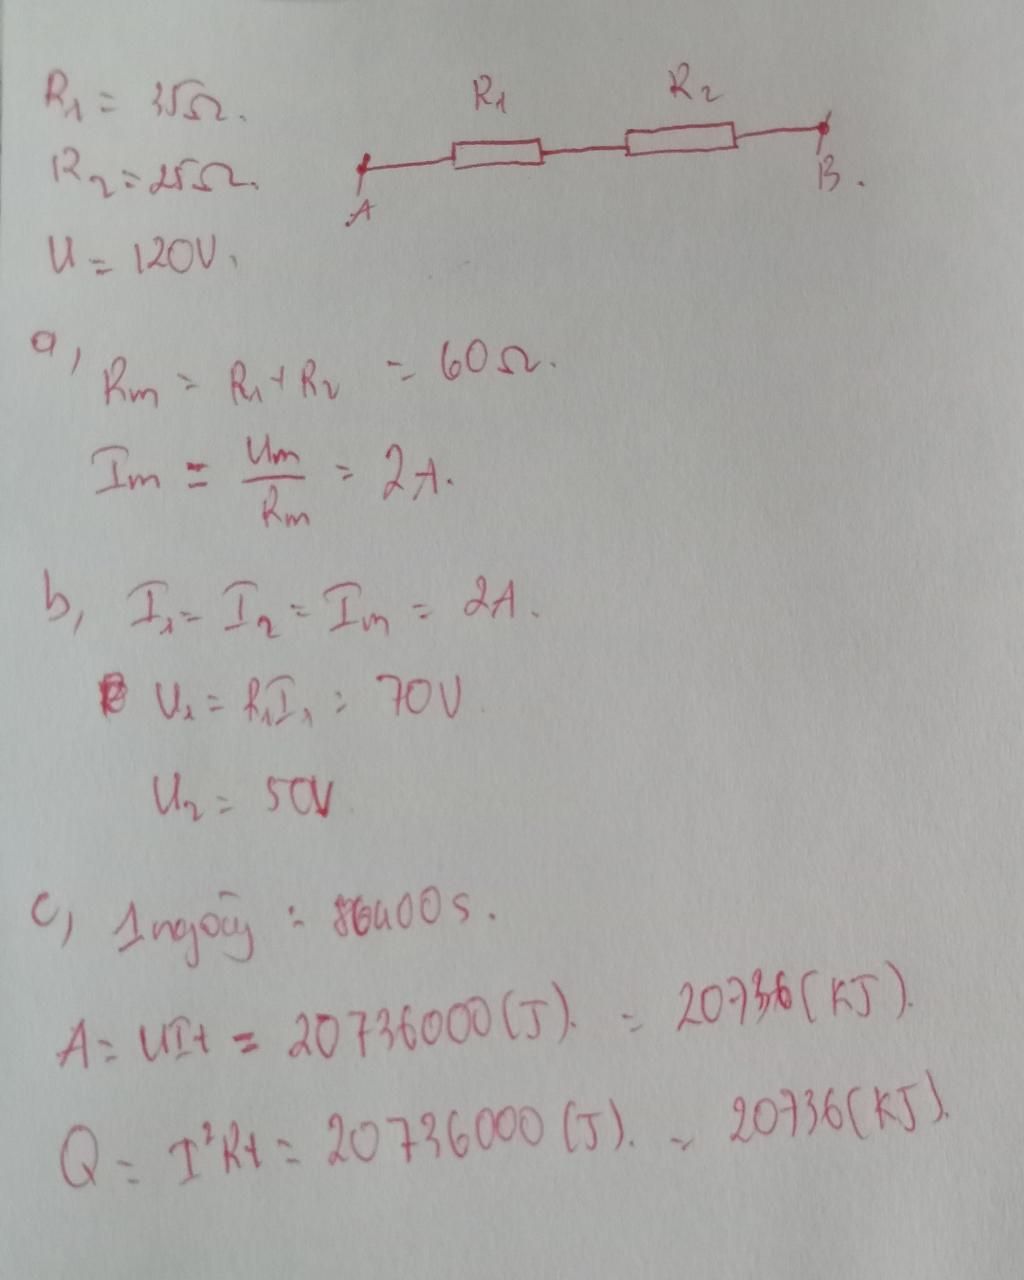 R₁ = 35Ω.
R₂ = 25Ω.
U = 120V.
R₁ R₂
A B.
a, Rm = R₁ + R₂ = 60Ω.
Im = Um/Rm = 2A.
b, I₁ = I₂ = Im = 2A.
U₁ = R₁I₁ = 70V
U₂ = 50V
c, 1 ngày = 86400s.
A = UIt = 20736000 (J). = 20736 (KJ).
Q = I²Rt = 20736000 (J). = 20736 (KJ).